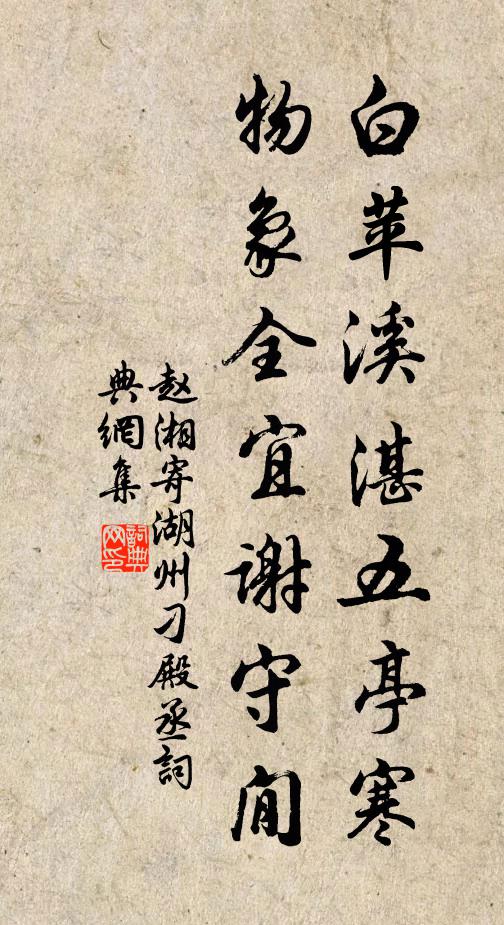 白苹溪湛五亭寒
物象全宜谢守闲
赵湘寄湖州刁殿丞词
典網集
詞典
网印